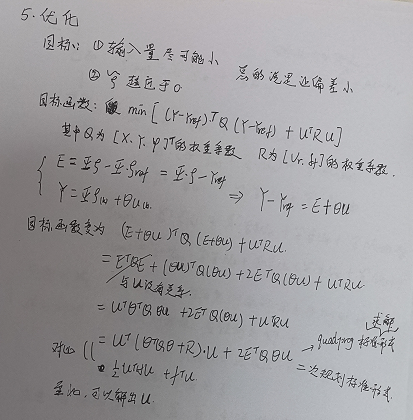 5. 优化
目标: ① 输入量尽可能小 总的说是让偏差小
② ξ 越近于0
目标函数: min [ (Y-Yref)ᵀ Q (Y-Yref) + UᵀRU ]
其中Q为 [X.Y.φ]ᵀ的权重系数 R为[Vr.δf]的权重系数.
{ E = Ψξ - Ψ·ξref = Ψ·ξ - Yref
Y = Ψξ(k) + ΘU(k). ⇒ Y - Yref = E+ΘU
目标函数变为 (E+ΘU)ᵀQ(E+ΘU) + UᵀRU
= EᵀQE + (ΘU)ᵀQ(ΘU) + 2EᵀQ(ΘU) + UᵀRU
与U没有关系.
= UᵀΘᵀQΘU + 2EᵀQ(ΘU) + UᵀRU
= Uᵀ(ΘᵀQΘ+R)·U + 2EᵀQΘU → quadprog 标准形式 求解
= ½UᵀHU + fᵀU. 二次规划标准形式.
至此, 可以解出U.